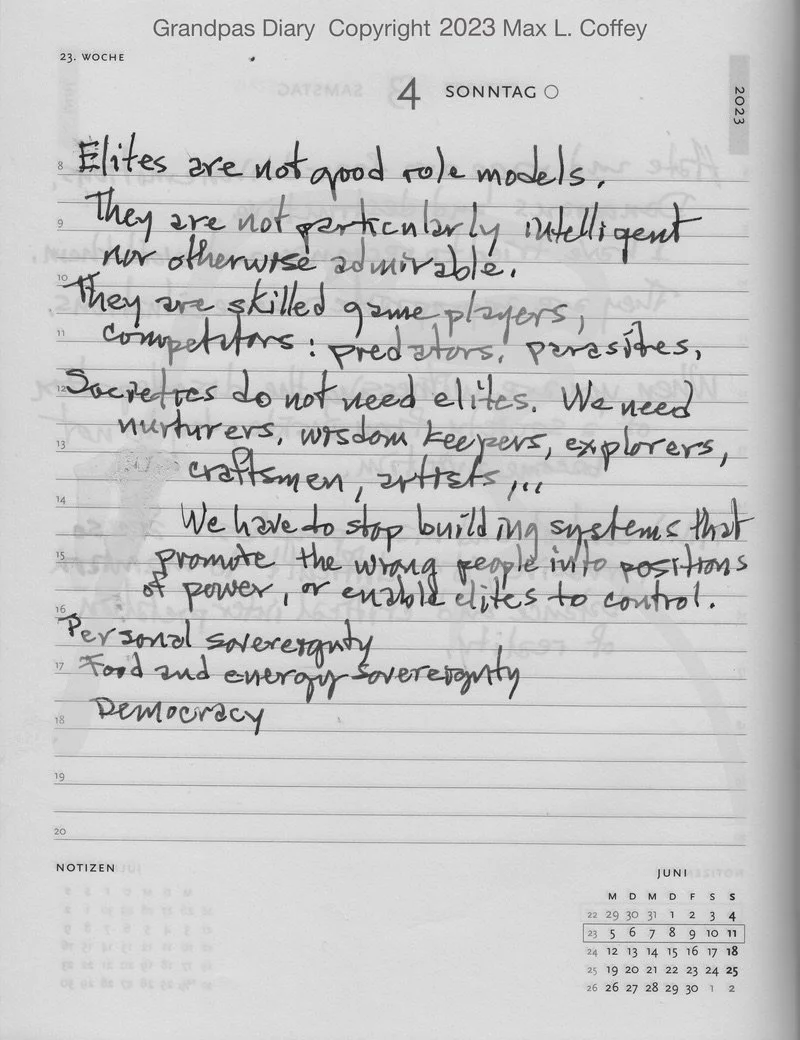 Grandpas Diary Copyright 2023 Max L. Coffey
23. WOCHE
4 SONNTAG
2023
8 Elites are not good role models.
9 They are not particularly intelligent
nor otherwise admirable.
10 They are skilled game players,
11 competitors: predators, parasites,
12 Societies do not need elites. We need
nurturers, wisdom keepers, explorers,
13 craftsmen, artists,...
14 We have to stop building systems that
15 promote the wrong people into positions
of power, or enable elites to control.
16 Personal sovereignty
17 Food and energy sovereignty
18 Democracy
19
20
NOTIZEN
JUNI
M D M D F S S
22 29 30 31 1 2 3 4
23 5 6 7 8 9 10 11
24 12 13 14 15 16 17 18
25 19 20 21 22 23 24 25
26 26 27 28 29 30 1 2